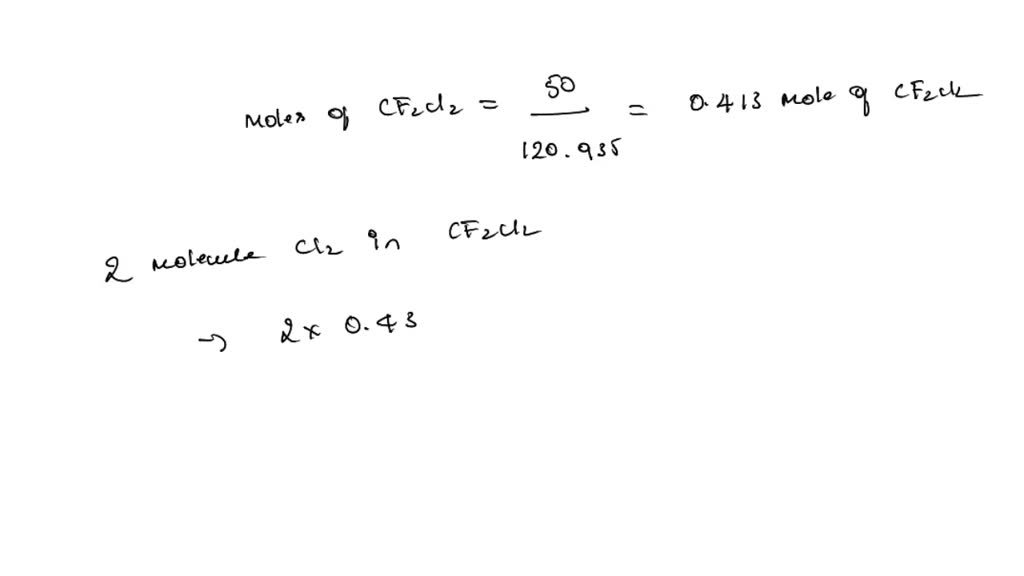 Moles of CF₂Cl₂ = 50 / 120.935 = 0.413 mole of CF₂Cl₂
2 molecule Cl₂ in CF₂Cl₂
→ 2 x 0.43